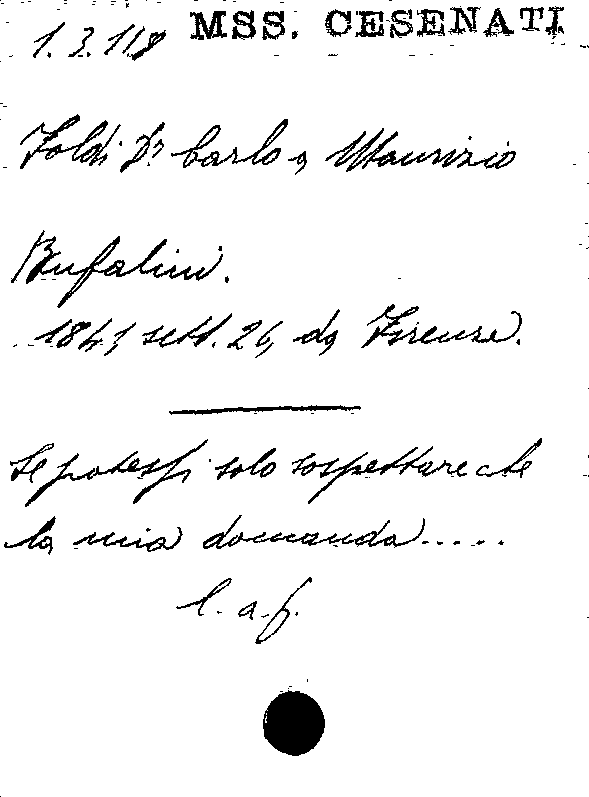 1.3.118 MSS. CESENATI
Foldi Dr Carlo a Maurizio
Bufalini.
1841, sett. 26, da Firenze.
Se potessi solo sospettare che
la mia domanda.....
l. a. f.